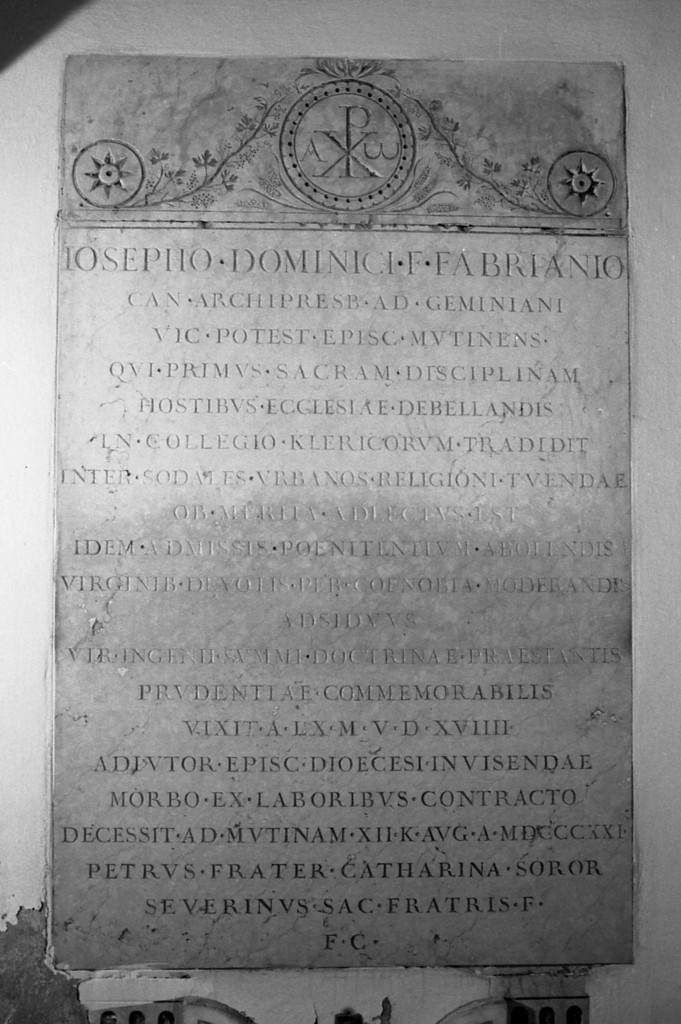 Α Ρ ω
IOSEPHO · DOMINICI · F · FABRIANIO
CAN · ARCHIPRESB · AD · GEMINIANI
VIC · POTEST · EPISC · MVTINENS ·
QVI · PRIMVS · SACRAM · DISCIPLINAM
HOSTIBVS · ECCLESIAE · DEBELLANDIS
IN · COLLEGIO · KLERICORVM · TRADIDIT
INTER · SODALES · VRBANOS · RELIGIONI · TVENDAE
OB · MERITA · ADLECTVS · EST
IDEM · ADMISSIS · POENITENTIVM · ABOLENDIS
VIRGINIB · DEVOTIS · PER · COENOBIA · MODERANDIS
ADSIDVVS
VIR · INGENII · SVMMI · DOCTRINAE · PRAESTANTIS
PRVDENTIAE · COMMEMORABILIS
VIXIT · A · LX · M · V · D · XVIIII ·
ADIVTOR · EPISC · DIOECESI · INVISENDAE
MORBO · EX · LABORIBVS · CONTRACTO
DECESSIT · AD · MVTINAM · XII · K · AVG · A · MDCCCXXI ·
PETRVS · FRATER · CATHARINA · SOROR
SEVERINVS · SAC · FRATRIS · F ·
F · C ·